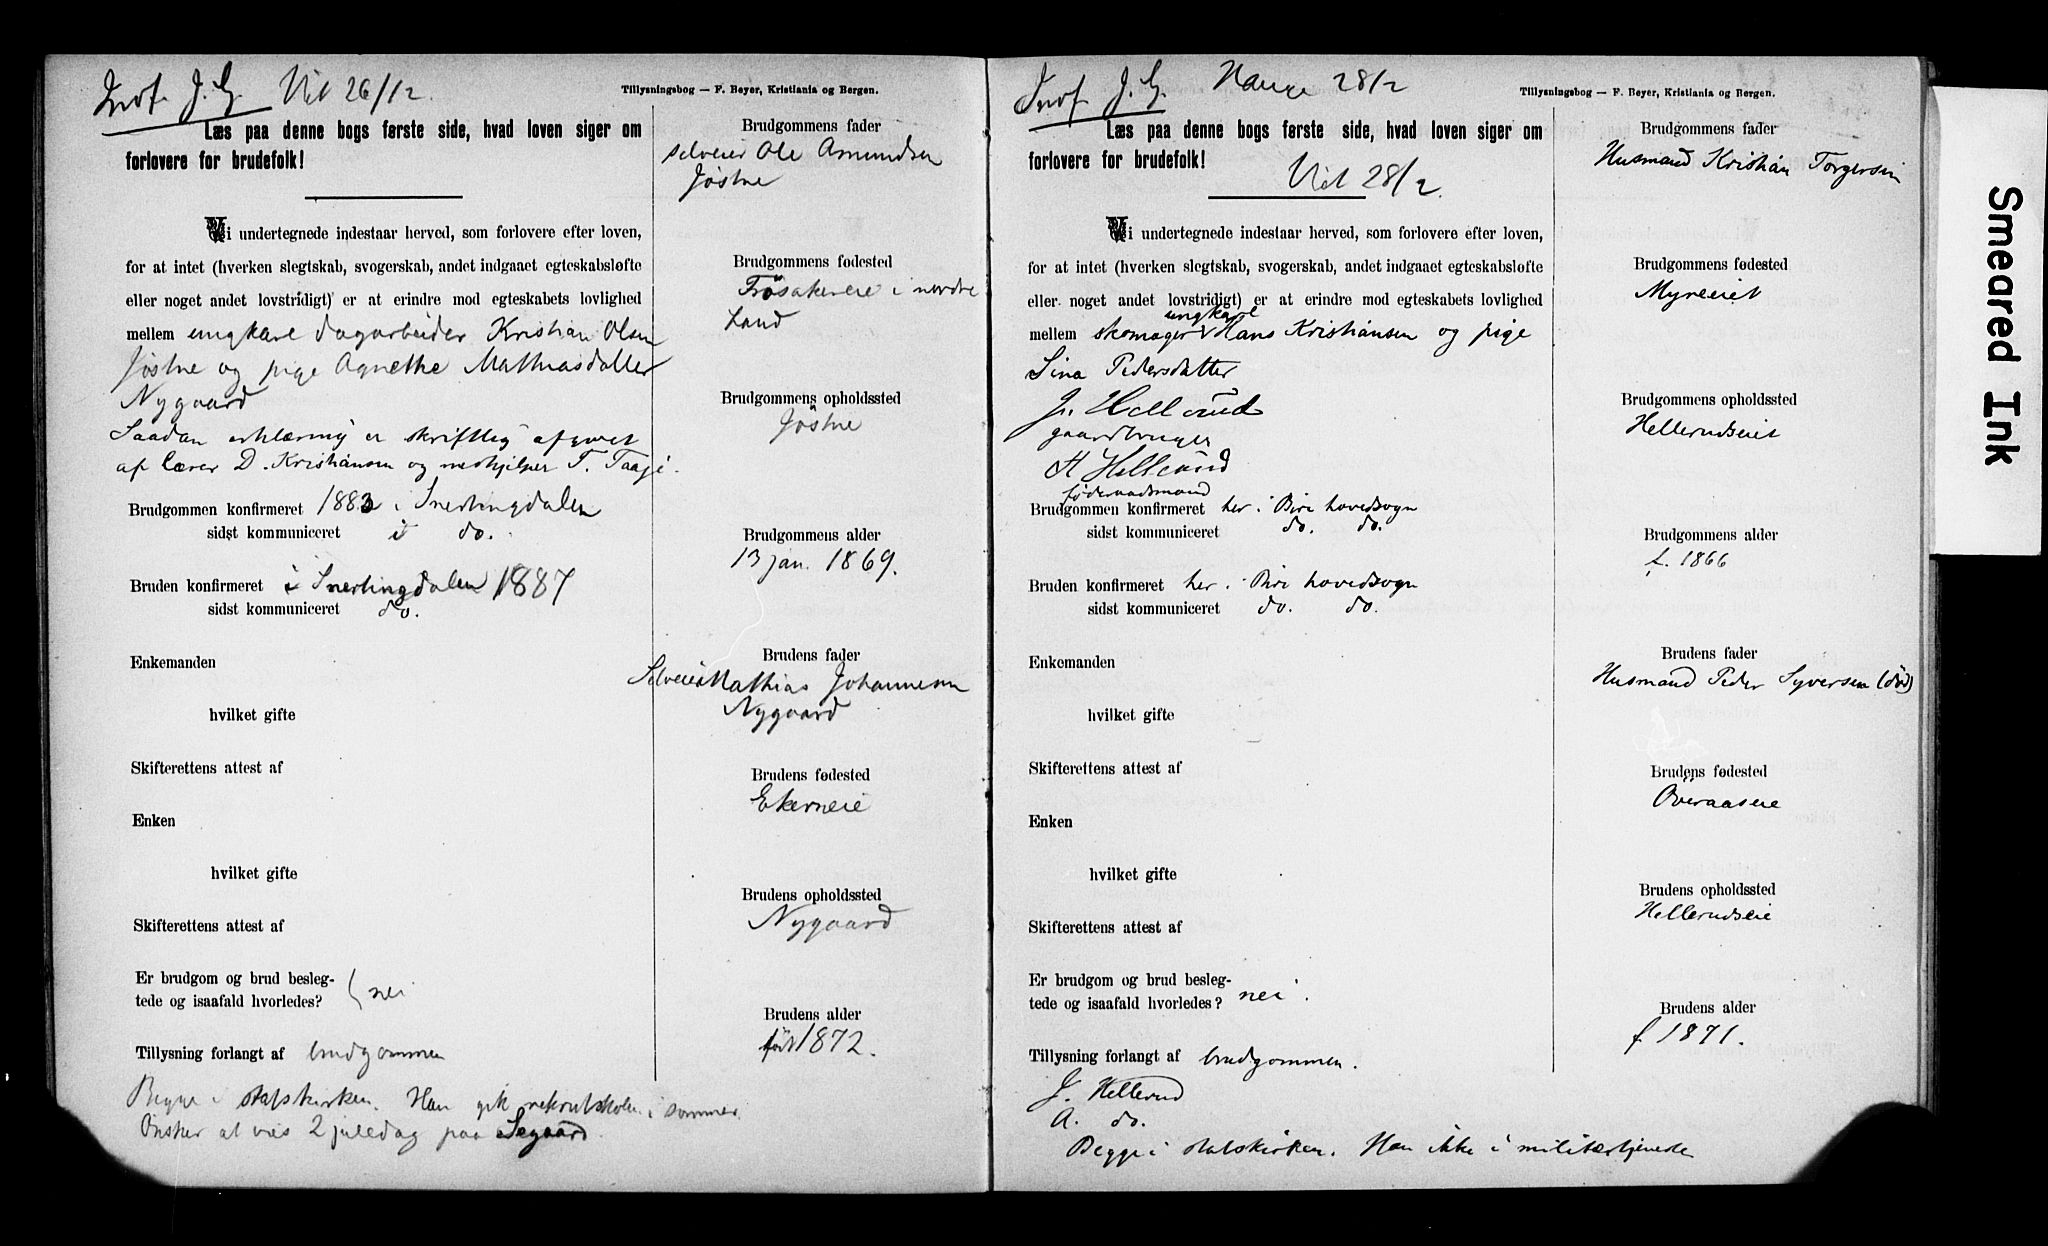 Inf. J. G. Vit 26/12.
Tillysningsbog — F. Beyer, Kristiania og Bergen.
Læs paa denne bogs første side, hvad loven siger om
forlovere for brudefolk!
Vi undertegnede indestaar herved, som forlovere efter loven,
for at intet (hverken slegtskab, svogerskab, andet indgaaet egteskabsløfte
eller noget andet lovstridigt) er at erindre mod egteskabets lovlighed
mellem ungkarl dagarbeider Kristian Olsen
Jøstne og pige Agnethe Mathiasdatter
Nygaard
Saadan erklæring er skriftlig afgivet
af lærer D. Kristiansen og medhjelper T. Taage.
Brudgommen konfirmeret 1883 i Snertingdalen
sidst kommuniceret i do.
Bruden konfirmeret i Snertingdalen 1887
sidst kommuniceret do.
Enkemanden
hvilket gifte
Skifterettens attest af
Enken
hvilket gifte
Skifterettens attest af
Er brudgom og brud besleg-
tede og isaafald hvorledes? nei
Tillysning forlangt af brudgommen
Begge i statskirken. Han gik rekrutskolen i sommer.
Ønsker at vies 2 juledag paa Segaard.
Brudgommens fader
Selveier Ole Amundsen
Jøstne
Brudgommens fødested
Frøsakereie i nordre
Land
Brudgommens opholdssted
Jøstne
Brudgommens alder
13 jan. 1869.
Brudens fader
Selveier Mathias Johannesen
Nygaard
Brudens fødested
Ekerneie
Brudens opholdssted
Nygaard
Brudens alder
født 1872.
Inf. J. G. Hauge 28/2
Tillysningsbog — F. Beyer, Kristiania og Bergen.
Læs paa denne bogs første side, hvad loven siger om
forlovere for brudefolk!
Vit 28/2.
Vi undertegnede indestaar herved, som forlovere efter loven,
for at intet (hverken slegtskab, svogerskab, andet indgaaet egteskabsløfte
eller noget andet lovstridigt) er at erindre mod egteskabets lovlighed
ungkarl
mellem skomager Hans Kristiansen og pige
Sina Pedersdatter
J. Hellerud
gaardbruger
A Hellerud
føderaadsmand
Brudgommen konfirmeret her i Biri hovedsogn
sidst kommuniceret do. do.
Bruden konfirmeret her i Biri hovedsogn
sidst kommuniceret do. do.
Enkemanden
hvilket gifte
Skifterettens attest af
Enken
hvilket gifte
Skifterettens attest af
Er brudgom og brud besleg-
tede og isaafald hvorledes? nei.
Tillysning forlangt af brudgommen.
J. Hellerud
A. do.
Begge i statskirken. Han ikke i militærtjeneste
Brudgommens fader
Husmand Kristian Torgersen
Brudgommens fødested
Myreeiet
Brudgommens opholdssted
Hellerudseiet
Brudgommens alder
f. 1866
Brudens fader
Husmand Peder Syversen (død)
Brudens fødested
Overaaseie
Brudens opholdssted
Hellerudseie
Brudens alder
f. 1871.
Smeared Ink